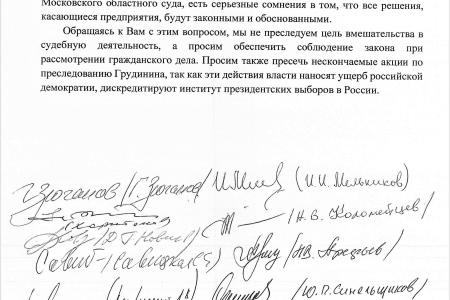 Московского областного суда, есть серьезные сомнения в том, что все решения,
касающиеся предприятия, будут законными и обоснованными.
Обращаясь к Вам с этим вопросом, мы не преследуем цель вмешательства в
судебную деятельность, а просим обеспечить соблюдение закона при
рассмотрении гражданского дела. Просим также пресечь нескончаемые акции по
преследованию Грудинина, так как эти действия власти наносят ущерб российской
демократии, дискредитируют институт президентских выборов в России.
Зюганов /Г. Зюганов/ (И.И. Мельников)
(Харитонов
/Д Г Новиков/ /Н.В. Коломейцев/
Савит- (Савицкая С) /Н.В. Арефьев/
/Ю.П. Синельщиков/